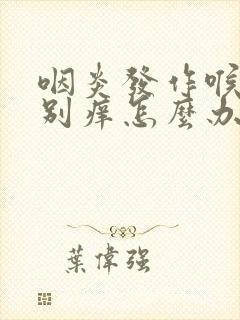 咽炎發作喉
別痒怎麼办
葉偉强